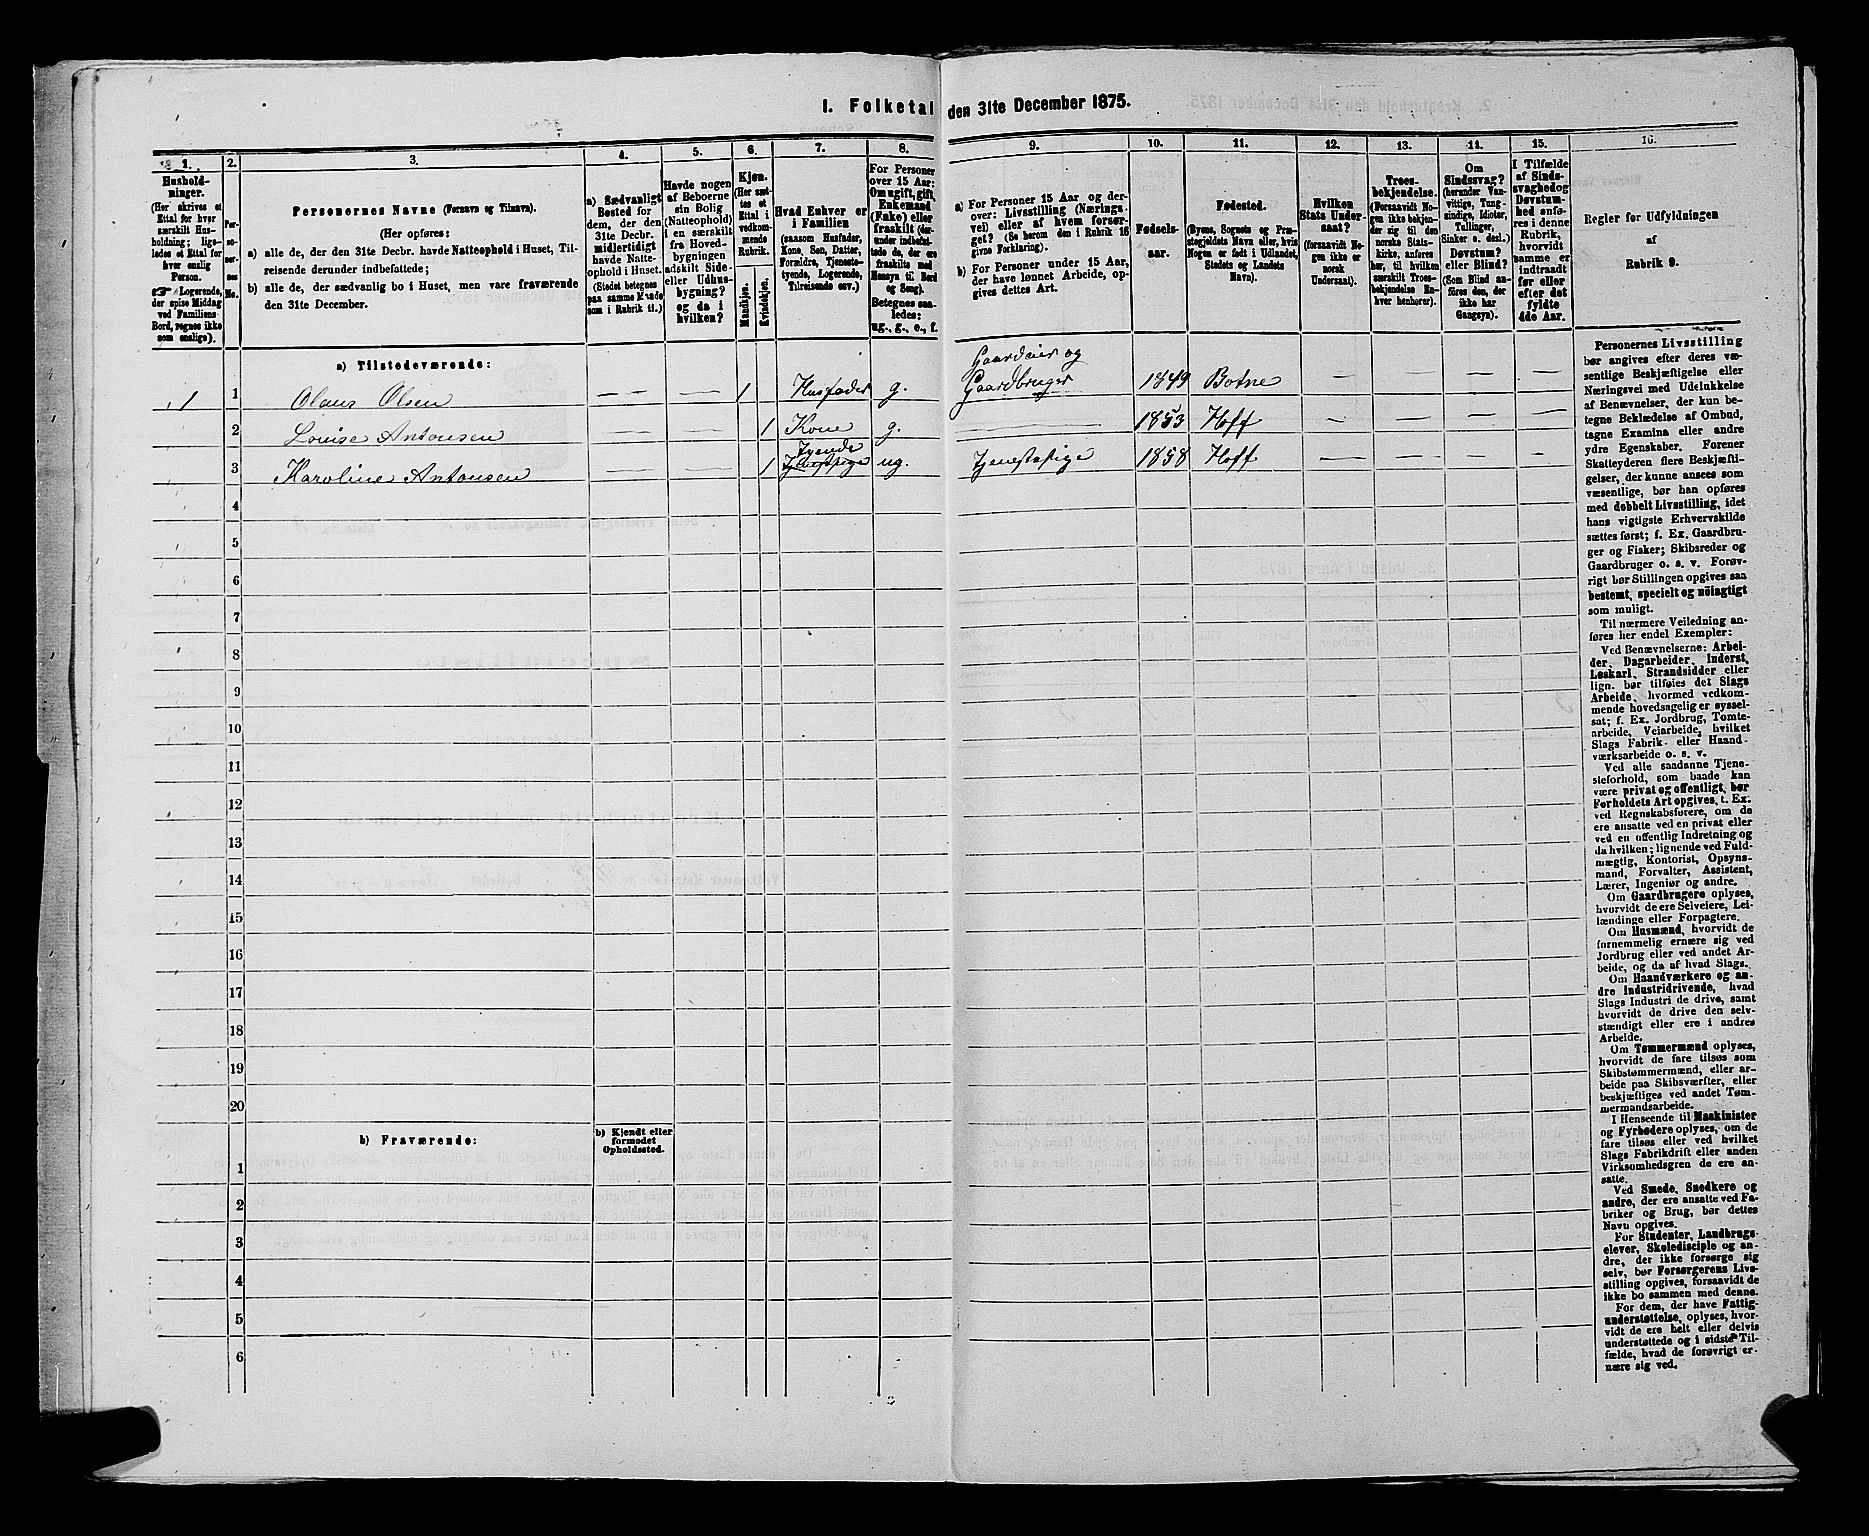 I. Folketal den 31te December 1875.
1. 2. 3. 4. 5. 6. 7. 8. 9. 10. 11. 12. 13. 14. 15. 16.
Hushold-
ninger.
(Her skrives et
Ettal for hver
særskilt Hus-
holdning; lige-
ledes et Ettal for
hver enslig
Person.
☛ Logerende,
der spise Middag
ved Familiens
Bord, regnes ikke
som enslige).
Per-
so-
ner-
nes
No.
Personernes Navne (Fornavn og Tilnavn).
(Her opføres:
a) alle de, der den 31te Decbr. havde Natteophold i Huset, Til-
reisende derunder indbefattede;
b) alle de, der sædvanlig bo i Huset, men vare fraværende
den 31te December.
a) Sædvanligt
Bosted for
dem, der den
31te Decbr.
midlertidigt
havde Natte-
ophold i Huset.
(Stedet betegnes
paa samme Maade
som i Rubrik 11.)
Havde nogen
af Beboerne
sin Bolig
(Natteophold)
i en særskilt
fra Hoved-
bygningen
adskilt Side-
eller Udhus-
bygning?
og da i
hvilken?
Kjøn.
(Her sæt-
tes et
Ettal i
vedkom-
mende
Rubrik.
Mandkjøn.
Kvindekjøn.
Hvad Enhver er
i Familien
(saasom Husfader,
Kone, Søn, Datter,
Forældre, Tjeneste-
tyende, Logerende,
Tilreisende osv.)
For Personer
over 15 Aar:
Om ugift, gift,
Enkemand
(Enke) eller
fraskilt (der-
under indbefat-
tede de, der ere
fraskilte med
Hensyn til Bord
og Seng).
Betegnes saa-
ledes:
ug., g., e., f.
a) For Personer 15 Aar og der-
over: Livsstilling (Nærings-
vei) eller af hvem forsør-
get? (Se herom den i Rubrik 16
givne Forklaring).
b) For Personer under 15 Aar,
der have lønnet Arbeide, op-
gives dettes Art.
Fødsels-
aar.
Fødested.
(Byens, Sognets og Præ-
stegjeldets Navn eller, hvis
Nogen er født i Udlandet,
Stedets og Landets
Navn).
Hvilken
Stats Under-
saat?
(forsaavidt No-
gen ikke er
norsk
Undersaat).
Troes-
bekjendelse.
(Forsaavidt No-
gen ikke bekjen-
der sig til den
norske Stats-
kirke, anføres
her, til hvilken
særskilt Troes-
bekjendelse En-
hver henhører).
Om
Sindssvag?
(herunder Van-
vittige, Tung-
sindige, Idioter,
Tullinger,
Sinker o. desl.)
Døvstum?
eller Blind?
(Som Blind an-
føres den, der
ikke har
Gangsyn).
I Tilfælde
af Sinds-
svaghed og
Døvstum-
hed anfø-
res i denne
Rubrik,
hvorvidt
samme er
indtraadt
før eller
efter det
fyldte
4de Aar.
Regler for Udfyldningen
af
Rubrik 9.
a) Tilstedeværende:
1 1 Olaus Olsen — — 1 Husfader g. Gaardeier og
Gaardbruger 1849 Botne — — — —
2 Lovise Antonsen — — 1 Kone g. — 1853 Hoff — — — —
3 Karoline Antonsen — — 1 Tyende ug. Tjenestepige 1858 Hoff — — — —
4
5
6
7
8
9
10
11
12
13
14
15
16
17
18
19
20
b) Fraværende:
b) Kjendt eller
formodet
Opholdssted.
1
2
3
4
5
6
Personernes Livsstilling
bør angives efter deres væ-
sentlige Beskjæftigelse eller
Næringsvei med Udelukkelse
af Benævnelser, der kun be-
tegne Beklædelse af Ombud,
tagne Examina eller andre
ydre Egenskaber. Forener
Skatteyderen flere Beskjæfti-
gelser, der kunne ansees som
væsentlige, bør han opføres
med dobbelt Livsstilling, idet
hans vigtigste Erhvervskilde
sættes først; f. Ex. Gaardbru-
ger og Fisker; Skibsreder og
Gaardbruger o. s. v. Forøv-
rigt bør Stillingen opgives saa
bestemt, specielt og nöiagtigt
som muligt.
Til nærmere Veiledning an-
føres her endel Exempler:
Ved Benævnelserne: Arbei-
der, Dagarbeider, Inderst,
Løskarl, Strandsidder eller
lign. bør tilføies det Slags
Arbeide, hvormed vedkom-
mende hovedsagelig er syssel-
sat; f. Ex. Jordbrug, Tomte-
arbeide, Veiarbeide, hvilket
Slags Fabrik- eller Haand-
værksarbeide o. s. v.
Ved alle saadanne Tjene-
steforhold, som baade kan
være privat og offentligt, bør
Forholdets Art opgives, t. Ex.
ved Regnskabsførere, om de
ere ansatte ved en privat eller
ved en offentlig Indretning og
da hvilken; lignende ved Fuld-
mægtig, Kontorist, Opsyns-
mand, Forvalter, Assistent,
Lærer, Ingeniør og andre.
Om Gaardbrugere oplyses,
hvorvidt de ere Selveiere, Lei-
lændinge eller Forpagtere.
Om Husmænd, hvorvidt de
fornemmelig ernære sig ved
Jordbrug eller ved andet Ar-
beide, og da af hvad Slags.
Om Haandværkere og an-
dre industridrivende, hvad
Slags Industri de drive, samt
hvorvidt de drive den selv-
stændigt eller ere i andres
Arbeide.
Om Tømmermænd oplyses,
hvorvidt de fare tilsøs som
Skibstømmermænd, eller ar-
beide paa Skibsværfter, eller
beskjæftiges ved andet Tøm-
mermandsarbeide.
I Henseende til Maskinister
og Fyrbødere oplyses, om de
fare tilsøs eller ved hvilket
Slags Fabrikdrift eller anden
Virksomhedsgren de ere an-
satte.
Ved Smede, Snedkere og
andre, der ere ansatte ved Fa-
briker og Brug, bør dettes
Navn opgives.
For Studenter, Landbrugs-
elever, Skoledisciple og an-
dre, der ikke forsørge sig
selv, bør Forsørgerens Livs-
stilling opgives, forsaavidt de
ikke bo sammen med denne.
For dem, der have Fattig-
understøttelse, oplyses, hvor-
vidt de ere helt eller delvis
understøttede og i sidste Til-
fælde, hvad de forøvrigt er-
nære sig ved.